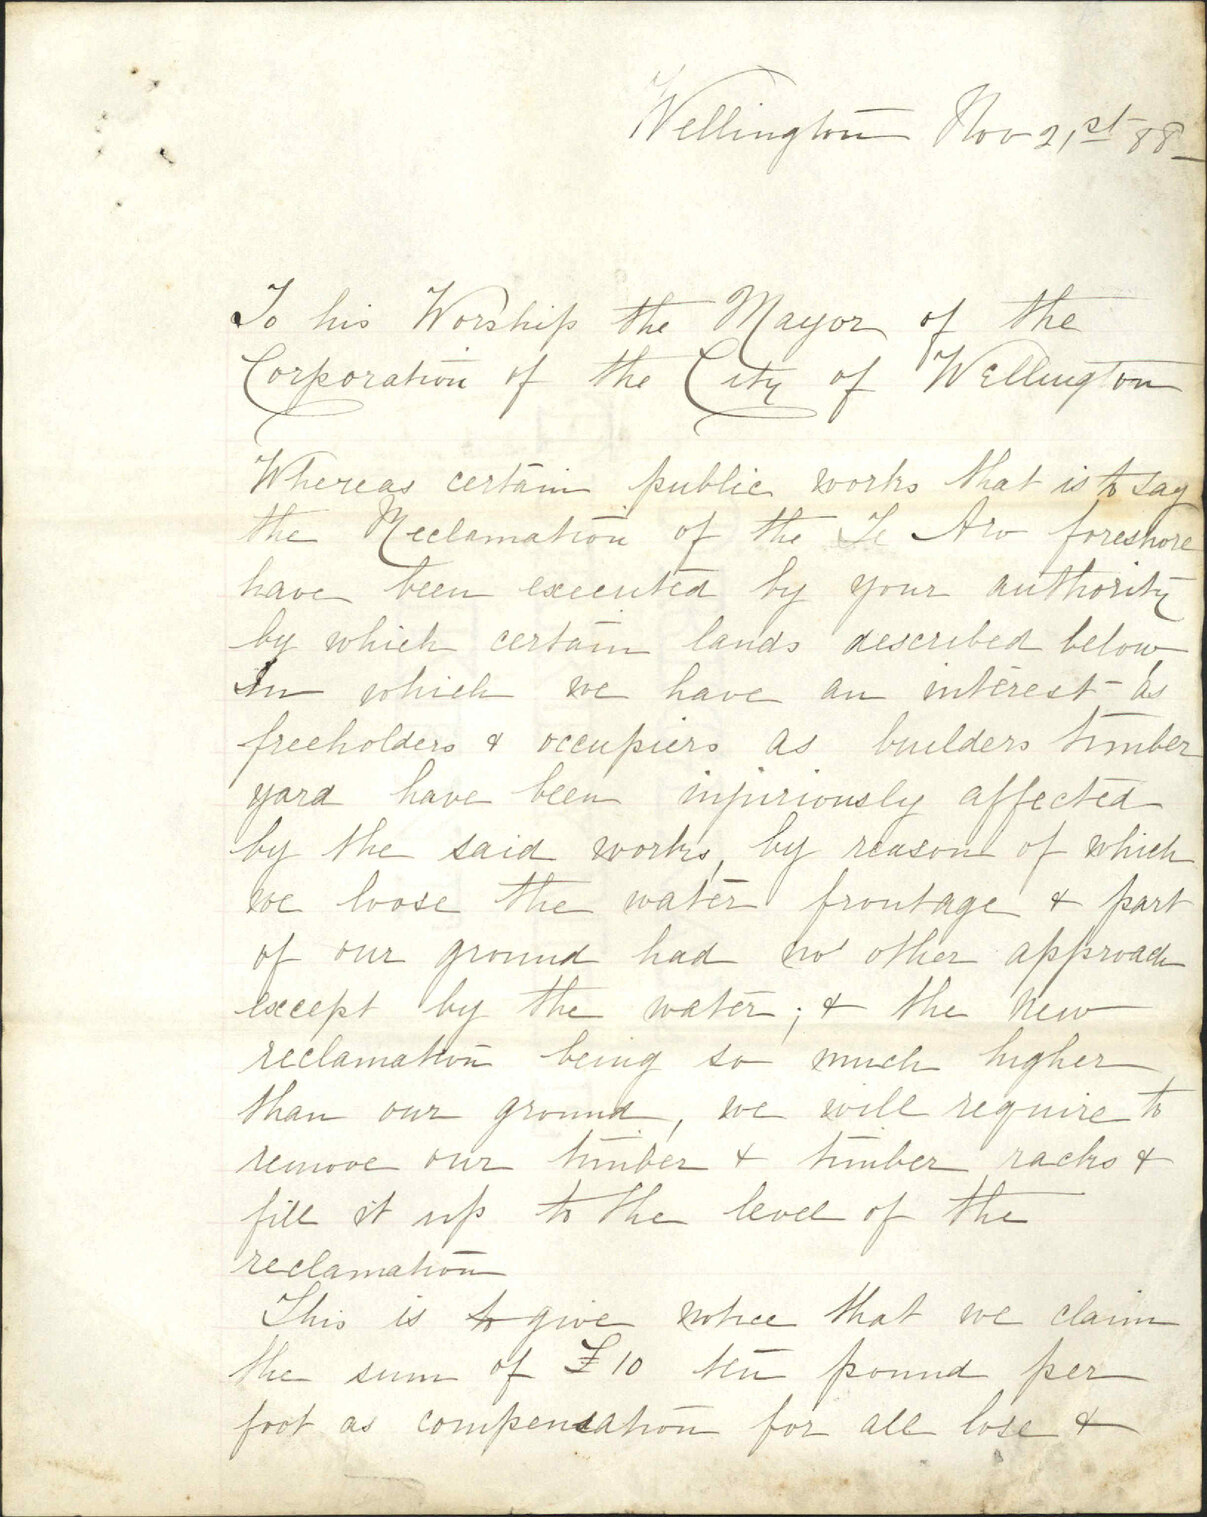 Wellington Nov 21st 88
To his Worship the Mayor of the
Corporation of the City of Wellington
Whereas certain public works that is to say
the Reclamation of the Te Aro foreshore
have been executed by your authority
by which certain lands described below
In which we have an interest as
freeholders & occupiers as builders timber
yard have been injuriously affected
by the said works, by reason of which
we loose the water frontage & part
of our ground had no other approach
except by the water; & the new
reclamation being so much higher
than our ground, we will require to
remove our timber & timber racks &
fill it up to the level of the
reclamation
This is to give notice that we claim
the sum of £10 ten pound per
foot as compensation for all lose &